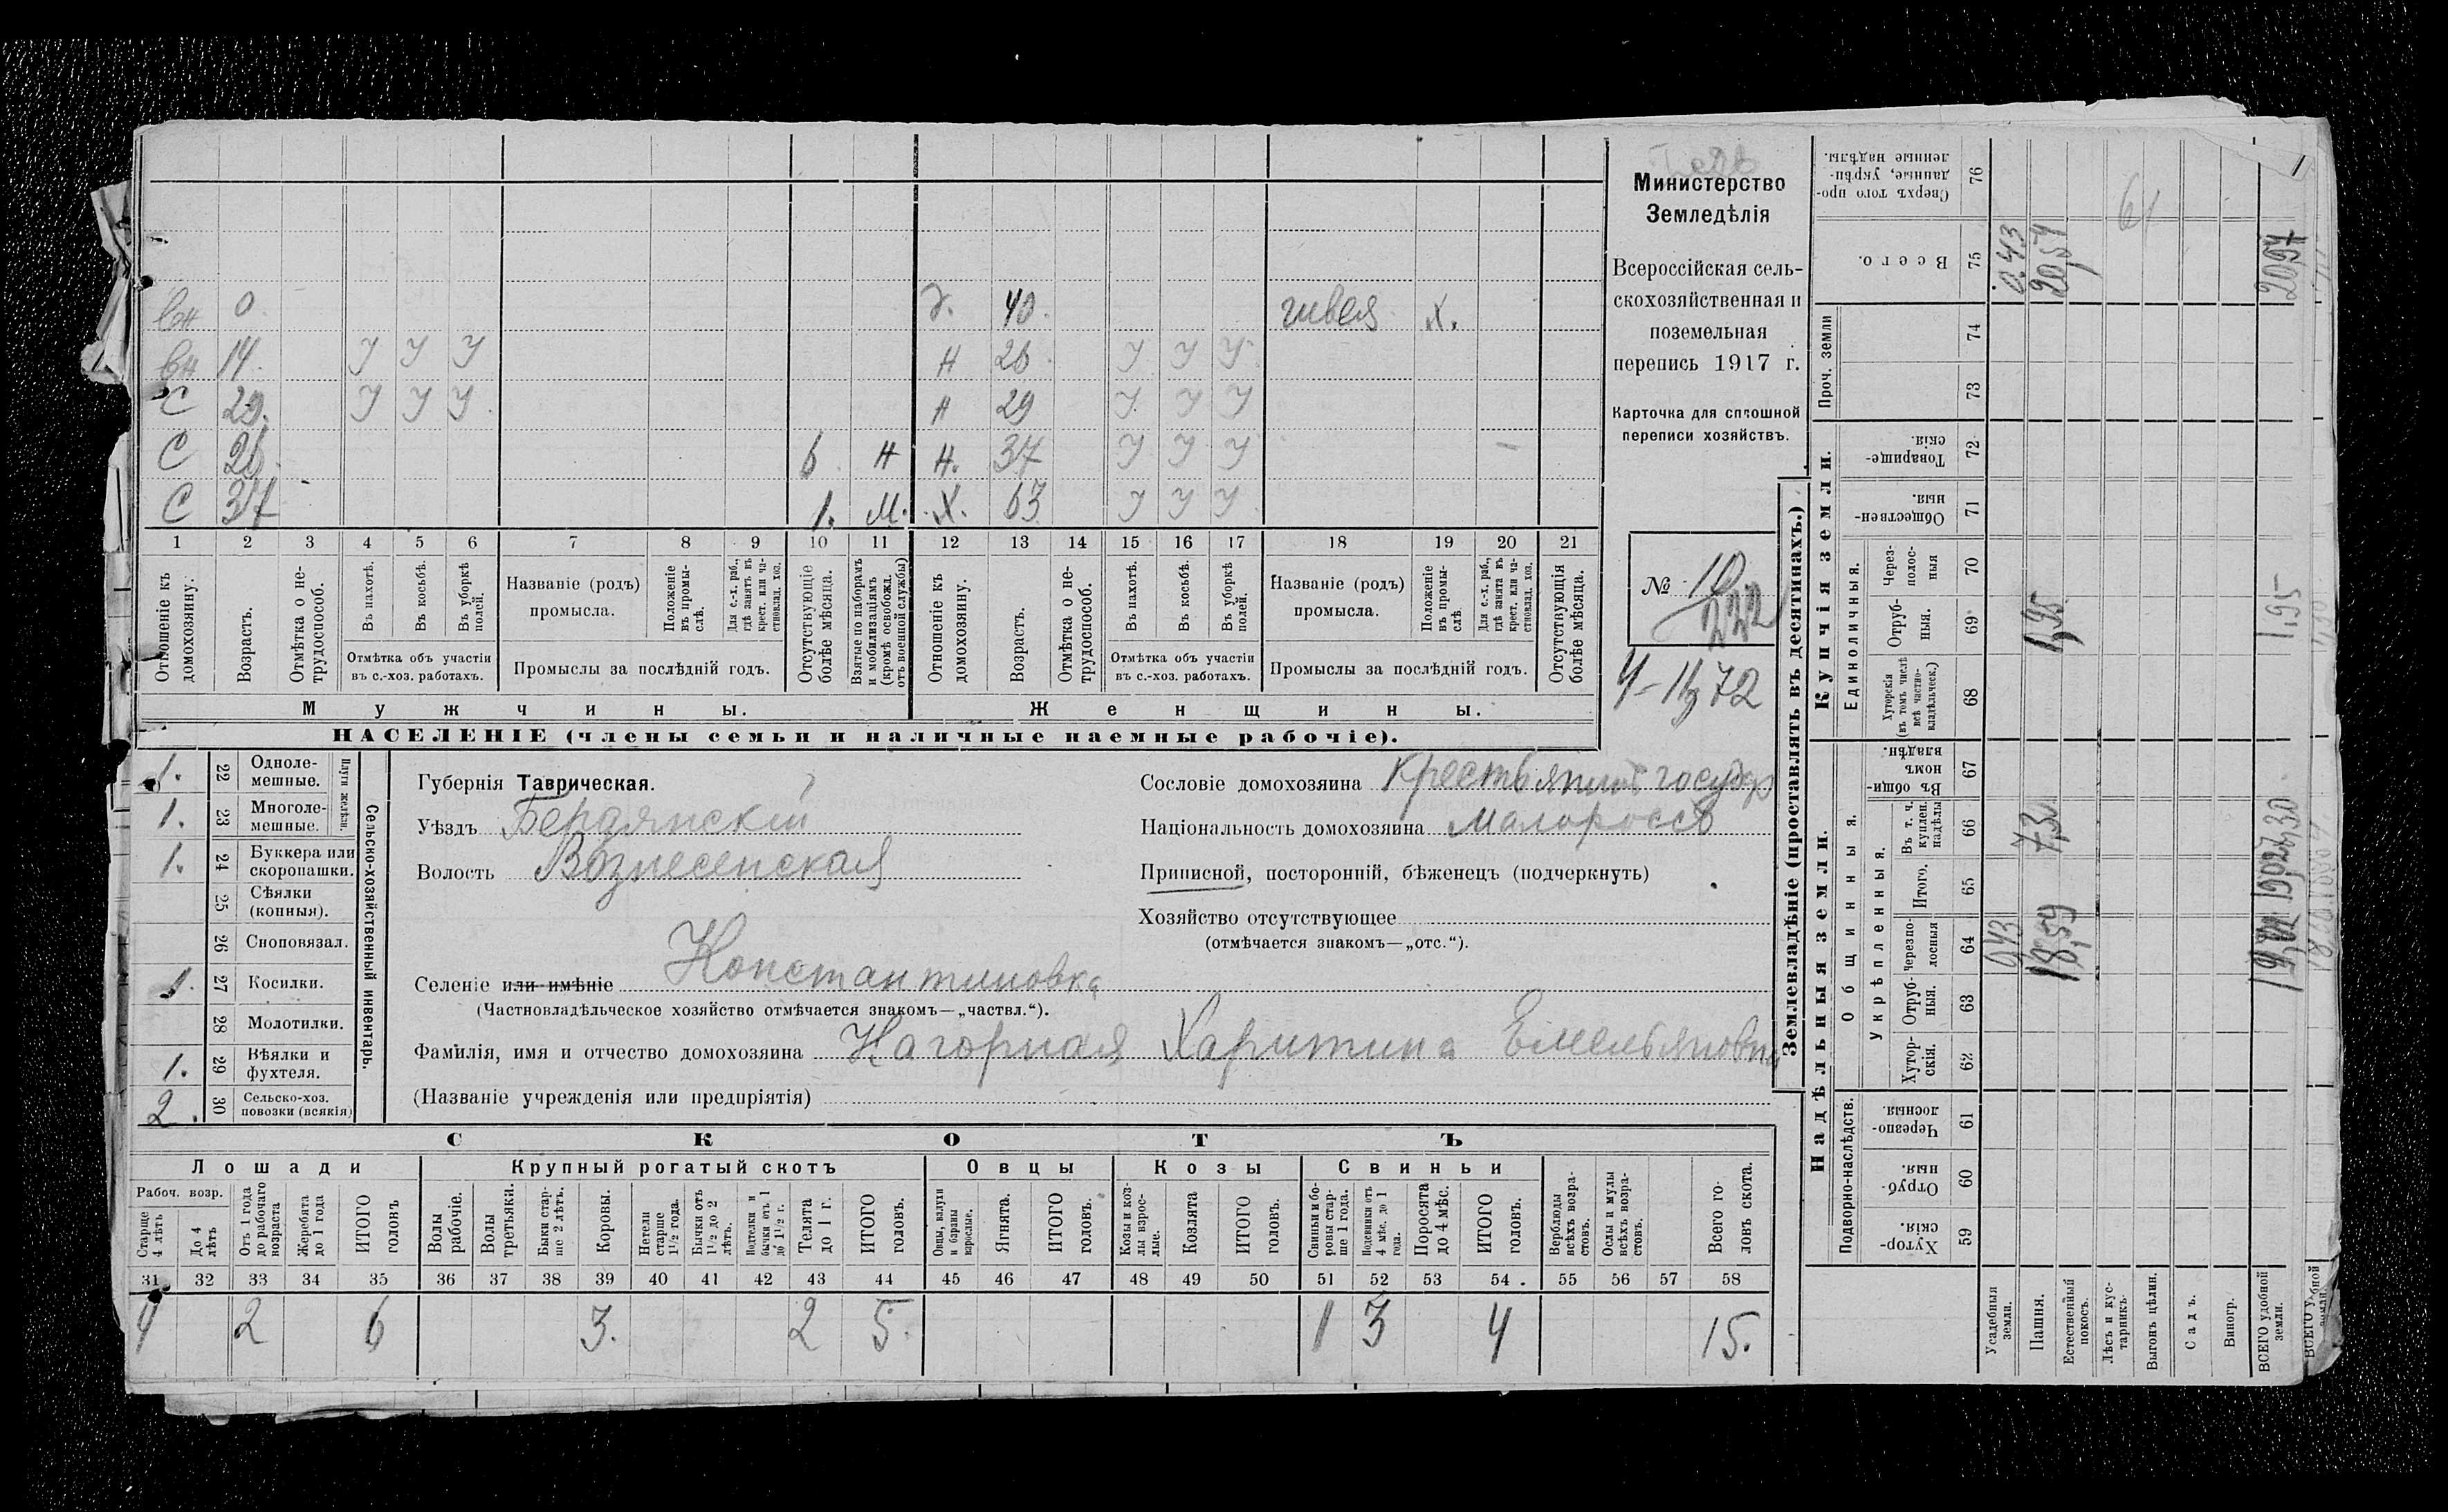 Министерство
Земледѣлія
Всероссійская сель-
скохозяйственная и
поземельная
перепись 1917 г.
Карточка для сплошной
переписи хозяйствъ.
№ 10
222
вн 0 д. 40. швея х.
вн 14 У У У н 26 У У У
С 29. У У У н 29 У У У
С 26 6 н н. 37 У У У —
С 37 1. м. х. 63 У У У
1 2 3 4 5 6 7 8 9 10 11 12 13 14 15 16 17 18 19 20 21
Отношеніе къ домохозяину.
Возрастъ.
Отмѣтка о не-трудоспособ.
Въ пахотѣ.
Въ косьбѣ.
Въ уборкѣ полей.
Отмѣтка объ участіи въ с.-хоз. работахъ.
Названіе (родъ) промысла.
Положеніе въ промы-слѣ.
Для с.-х. раб., гдѣ занятъ въ крест. или ча-стновлад. хоз.
Промыслы за послѣдній годъ.
Отсутствующіе болѣе мѣсяца.
Взятые по наборамъ и мобилизаціямъ (кромѣ освобожд. отъ военной службы)
Отношеніе къ домохозяину.
Возрастъ.
Отмѣтка о не-трудоспособ.
Въ пахотѣ.
Въ косьбѣ.
Въ уборкѣ полей.
Отмѣтка объ участіи въ с.-хоз. работахъ.
Названіе (родъ) промысла.
Положеніе въ промы-слѣ
Для с.-х. раб., гдѣ занята въ крест. или ча-стновлад. хоз.
Промыслы за послѣдній годъ.
Отсутствующія болѣе мѣсяца.
Мужчины. Женщины.
НАСЕЛЕНІЕ (члены семьи и наличные наемные рабочіе).
Сельско-хозяйственный инвентарь.
Плуги желѣзн.
1. 22 Одноле-мешные.
1. 23 Многоле-мешные.
1. 24 Буккера или скоропашки.
25 Сѣялки (конныя).
26 Сноповязал.
1 27 Косилки.
28 Молотилки.
1. 29 Вѣялки и фухтеля.
2. 30 Сельско-хоз. повозки (всякія)
Губернія Таврическая.
Уѣздъ Бердянскій
Волость Вознесенская
Сословіе домохозяина Крестьянинъ государ
Національность домохозяина малороссъ
Приписной, посторонній, бѣженецъ (подчеркнуть)
Хозяйство отсутствующее
(отмѣчается знакомъ—„отс.“).
Селеніе или имѣніе Константиновка
(Частновладѣльческое хозяйство отмѣчается знакомъ—„частвл.“).
Фамилія, имя и отчество домохозяина Нагорная Харитина Емельяновна
(Названіе учрежденія или предпріятія)
СКОТЪ
Лошади Крупный рогатый скотъ Овцы Козы Свиньи
Рабоч. возр.
Старше 4 лѣтъ
До 4 лѣтъ
Отъ 1 года до рабочаго возраста
Жеребята до 1 года
ИТОГО головъ
Волы рабочіе.
Волы третьяки.
Быки стар-ше 2 лѣтъ.
Коровы.
Нетели старше 1½ года.
Бычки отъ 1½ до 2 лѣтъ.
Подтелки и бычки отъ 1 до 1½ г.
Телята до 1 г.
ИТОГО головъ.
Овцы, валухи и бараны взрослые.
Ягнята.
ИТОГО головъ.
Козы и коз-лы взрос-лые.
Козлята
ИТОГО головъ.
Свиньи и бо-ровы стар-ше 1 года.
Подсвинки отъ 4 мѣс. до 1 года.
Поросята до 4 мѣс.
ИТОГО головъ.
Верблюды всѣхъ возра-стовъ.
Ослы и мулы всѣхъ возра-стовъ.
Всего го-ловъ скота.
31 32 33 34 35 36 37 38 39 40 41 42 43 44 45 46 47 48 49 50 51 52 53 54 55 56 57 58
4 2 6 3. 2 5. 1 3 4 15.
Землевладѣніе (проставлять въ десятинахъ.)
Надѣльныя земли.
Подворно-наслѣдств.
Хутор-скія. 59
Отруб-ныя. 60
Черезпо-лосныя. 61
Общинныя.
Укрѣпленныя.
Хутор-скія. 62
Отруб-ныя. 63
Черезпо-лосныя 64
Итого. 65
Въ т. ч. куплен. надѣлы 66
Въ общин-номъ владѣн. 67
Купчія земли.
Единоличныя.
Хуторскія (въ томъ числѣ всѣ частно-владѣльческ.) 68
Отруб-ныя. 69
Через-полос-ныя 70
Обществен-ныя. 71
Товарище-скія. 72
Проч. земли
73 74
Всего. 75
Сверхъ того про-данные, укрѣп-ленные надѣлы. 76
Усадебныя земли. 0,43 0,43
Пашня. 18,59 7,30 1,95 20,54
Естественный покосъ.
Лѣсъ и кус-тарникъ.
Выгонъ цѣлин.
Садъ.
Виногр.
ВСЕГО удобной земли. 7,30 1,95 20,97
61
1